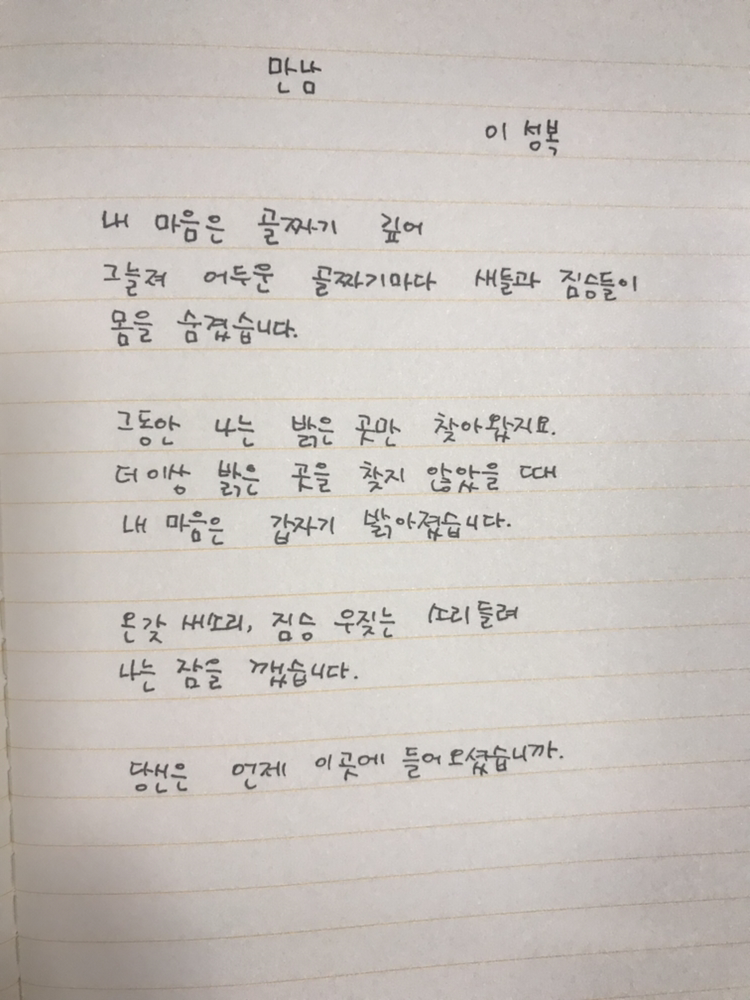 만남
이 성복
내 마음은 골짜기 깊어
그늘져 어두운 골짜기마다 새들과 짐승들이
몸을 숨겼습니다.
그동안 나는 밝은 곳만 찾아왔지요.
더 이상 밝은 곳을 찾지 않았을 때
내 마음은 갑자기 밝아졌습니다.
온갖 새소리, 짐승 우짖는 소리 들려
나는 잠을 깼습니다.
당신은 언제 이곳에 들어오셨습니까.